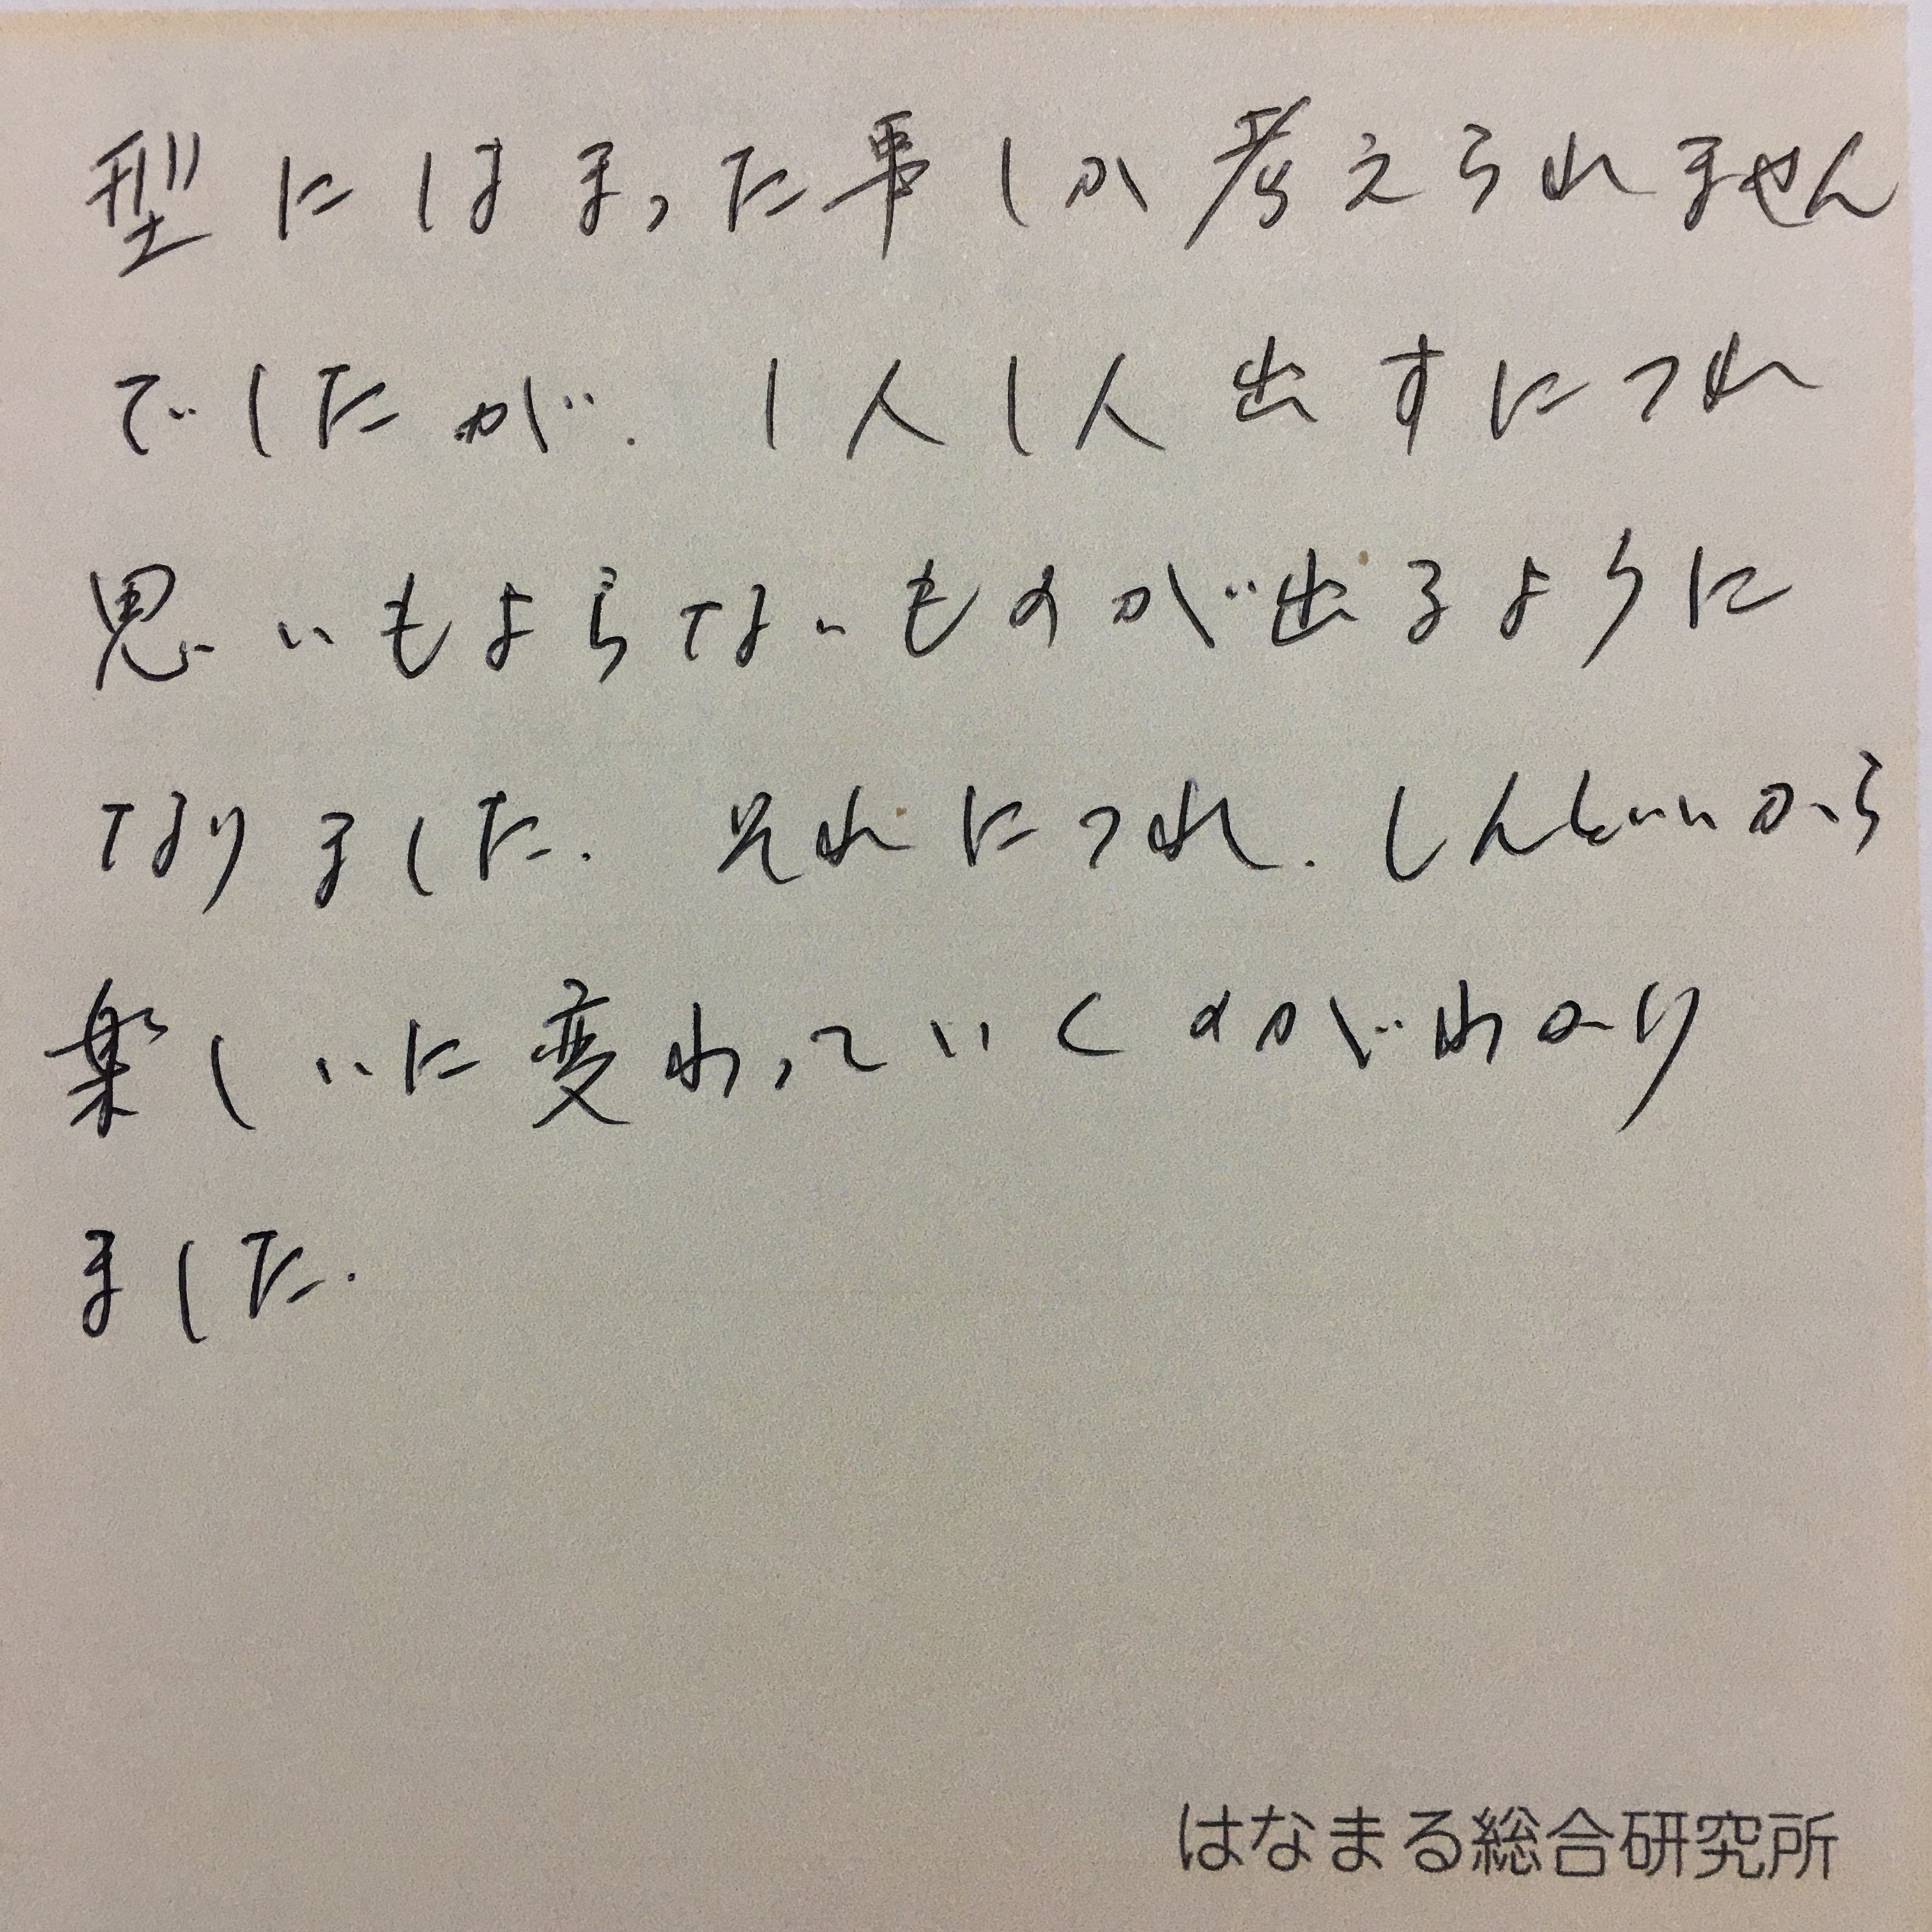 型にはまった事しか考えられません
でしたが、1人1人出すにつれ
思いもよらないものが出るように
なりました。それにつれ、しんどいから
楽しいに変わっていくのがわかり
ました。
はなまる総合研究所